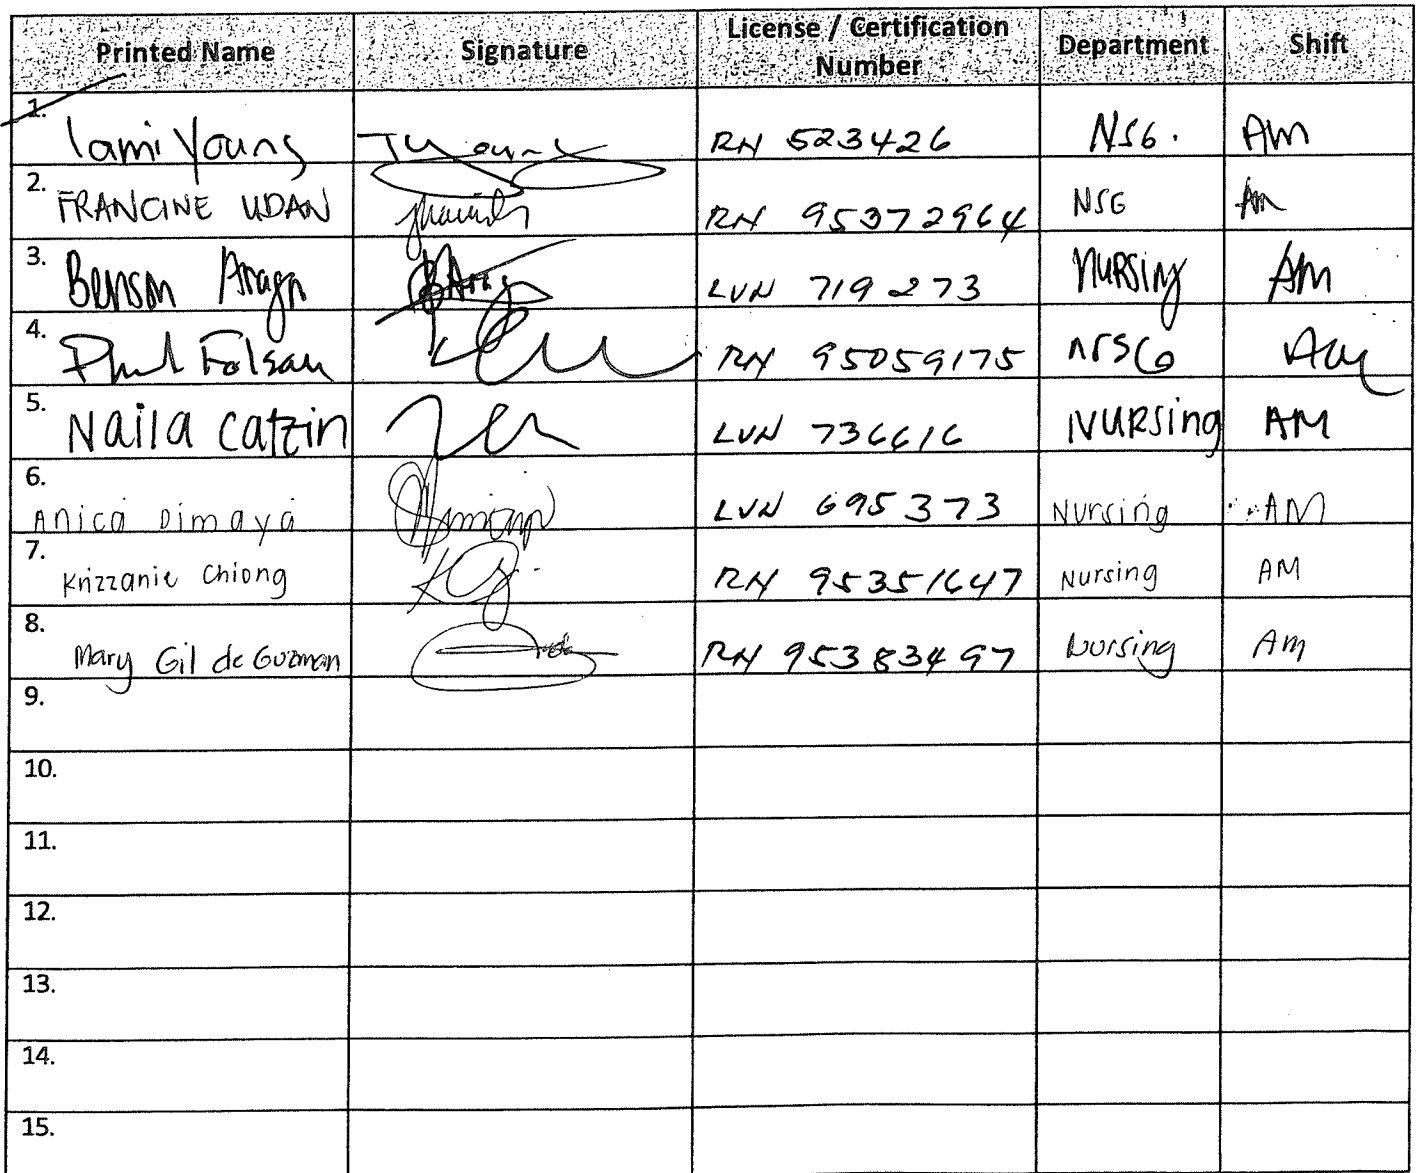 Printed Name Signature License / Certification Number Department Shift
1. Tami Young TYoung RN 523426 NSG. AM
2. FRANCINE UDAN RN 95372964 NSG Am
3. Benson Aragn RN LVN 719273 NURSING AM
4. Phil Folsau RN 95059175 NSG AM
5. Naila Catzin LVN 736616 NURSing AM
6. Anica Dimaya LVN 695373 Nursing AM
7. Krizzanie Chiong RN 95351647 Nursing AM
8. Mary Gil de Guzman RN 95383497 Nursing Am
9.
10.
11.
12.
13.
14.
15.